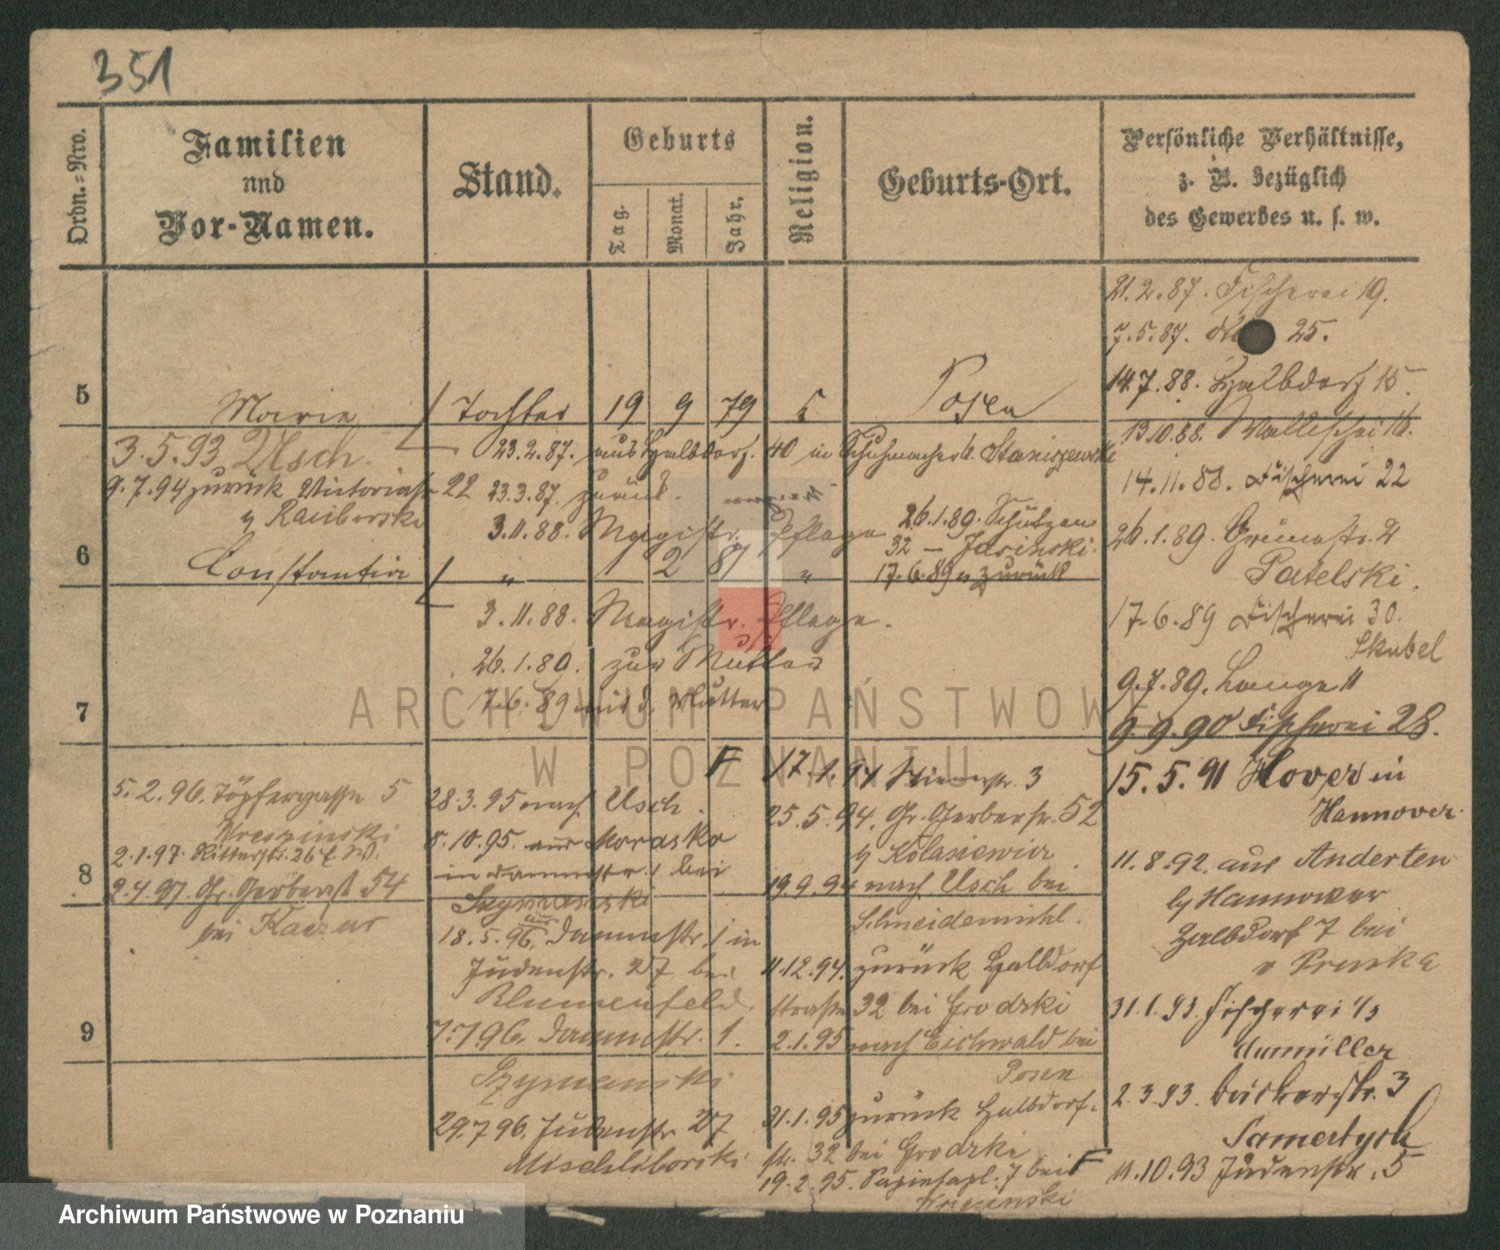 351
Ordn.-Nro.
Familien
und
Vor-Namen.
Stand.
Geburts
Tag.
Monat.
Jahr.
Religion.
Geburts-Ort.
Persönliche Verhältnisse,
z. B. bezüglich
des Gewerbes u. s. w.
21.2.87. Fischerei 19.
7.5.87. 25.
14.7.88. Halbdorf 15.
13.10.88. Wallischei 16.
14.11.88. Fischerei 22
26.1.89. Grünestr. 2
Patelski.
17.6.89 Fischerei 30.
Skubel
9.7.89. Lange 11
9.9.90 Fischerei 28.
15.5.91 Hover in
Hannover.
11.8.92. aus Anderten
b/ Hannover
Halbdorf 7 bei
v Pruska
31.1.93. Fischerei 1/3
2.3.93. Bäckerstr. 3
11.10.93 Judenstr. 5
5 Marie Tochter 19 9 79 Posen
3.5.93 Usch. 23.2.87. aus Halbdorf. 40 in Schuhmacher Staniszewski
9.7.94 zurück Victoriastr 22 23.3.87. zurück.
b/ Raciborski 3.11.88. Magistr. Pflege 26.1.89. Schützen
32 - Jasinski.
6 Constantia " 2 87 " 17.6.89 zurück
3.11.88. Magistr. Pflege.
26.1.89. zur Mutter
7.6.89 mit d. Mutter
7
F 17.1.94 3
5.2.96. Töpfergasse 5 28.3.95 nach Usch. 25.5.94. Gr. Gerberstr. 52
Wreszinski 8.10.95. aus Morasko b/ Kolasiewicz
2.1.97. Ritterstr. 36 in Dammstr. 1 bei
8 2.4.97. Gr. Gerberst 54 Szymanski 19.9.94 nach Usch bei
bei Kaczor 18.5.96. aus Dammstr. 1 in Schneidemühl.
Judenstr. 27 bei 11.12.94. zurück Halbdorf
Blumenfeld. straße 32 bei Grodzki
9 7.7.96. Dammstr. 1. 2.1.95 nach Eichwald bei
Szymanski Posen
29.7.96. Judenstr 27 31.1.95 zurück Halbdorf-
Mischliborski str. 32 bei Grodzki
19.2.95. 7 bei F
ARCHIWUM PAŃSTWOWE
W POZNANIU
Archiwum Państwowe w Poznaniu